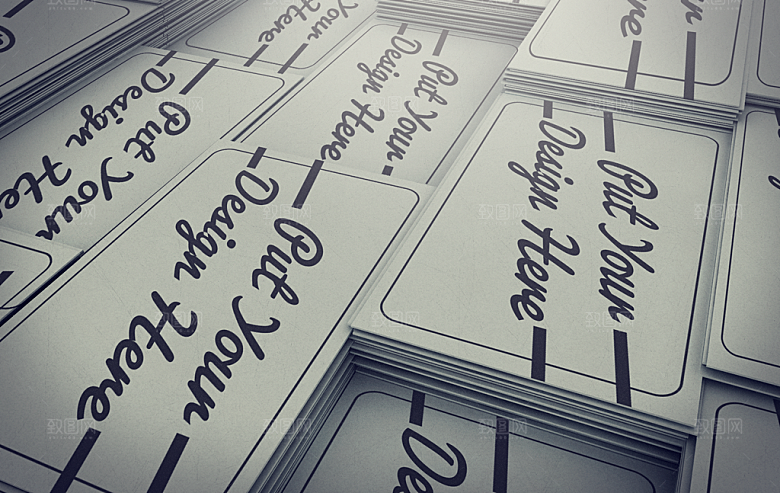 Your
Here
Put Your
Design Here
Put Your
Design Here
Put Your
Design Here
Put Your
Design Here
致图网